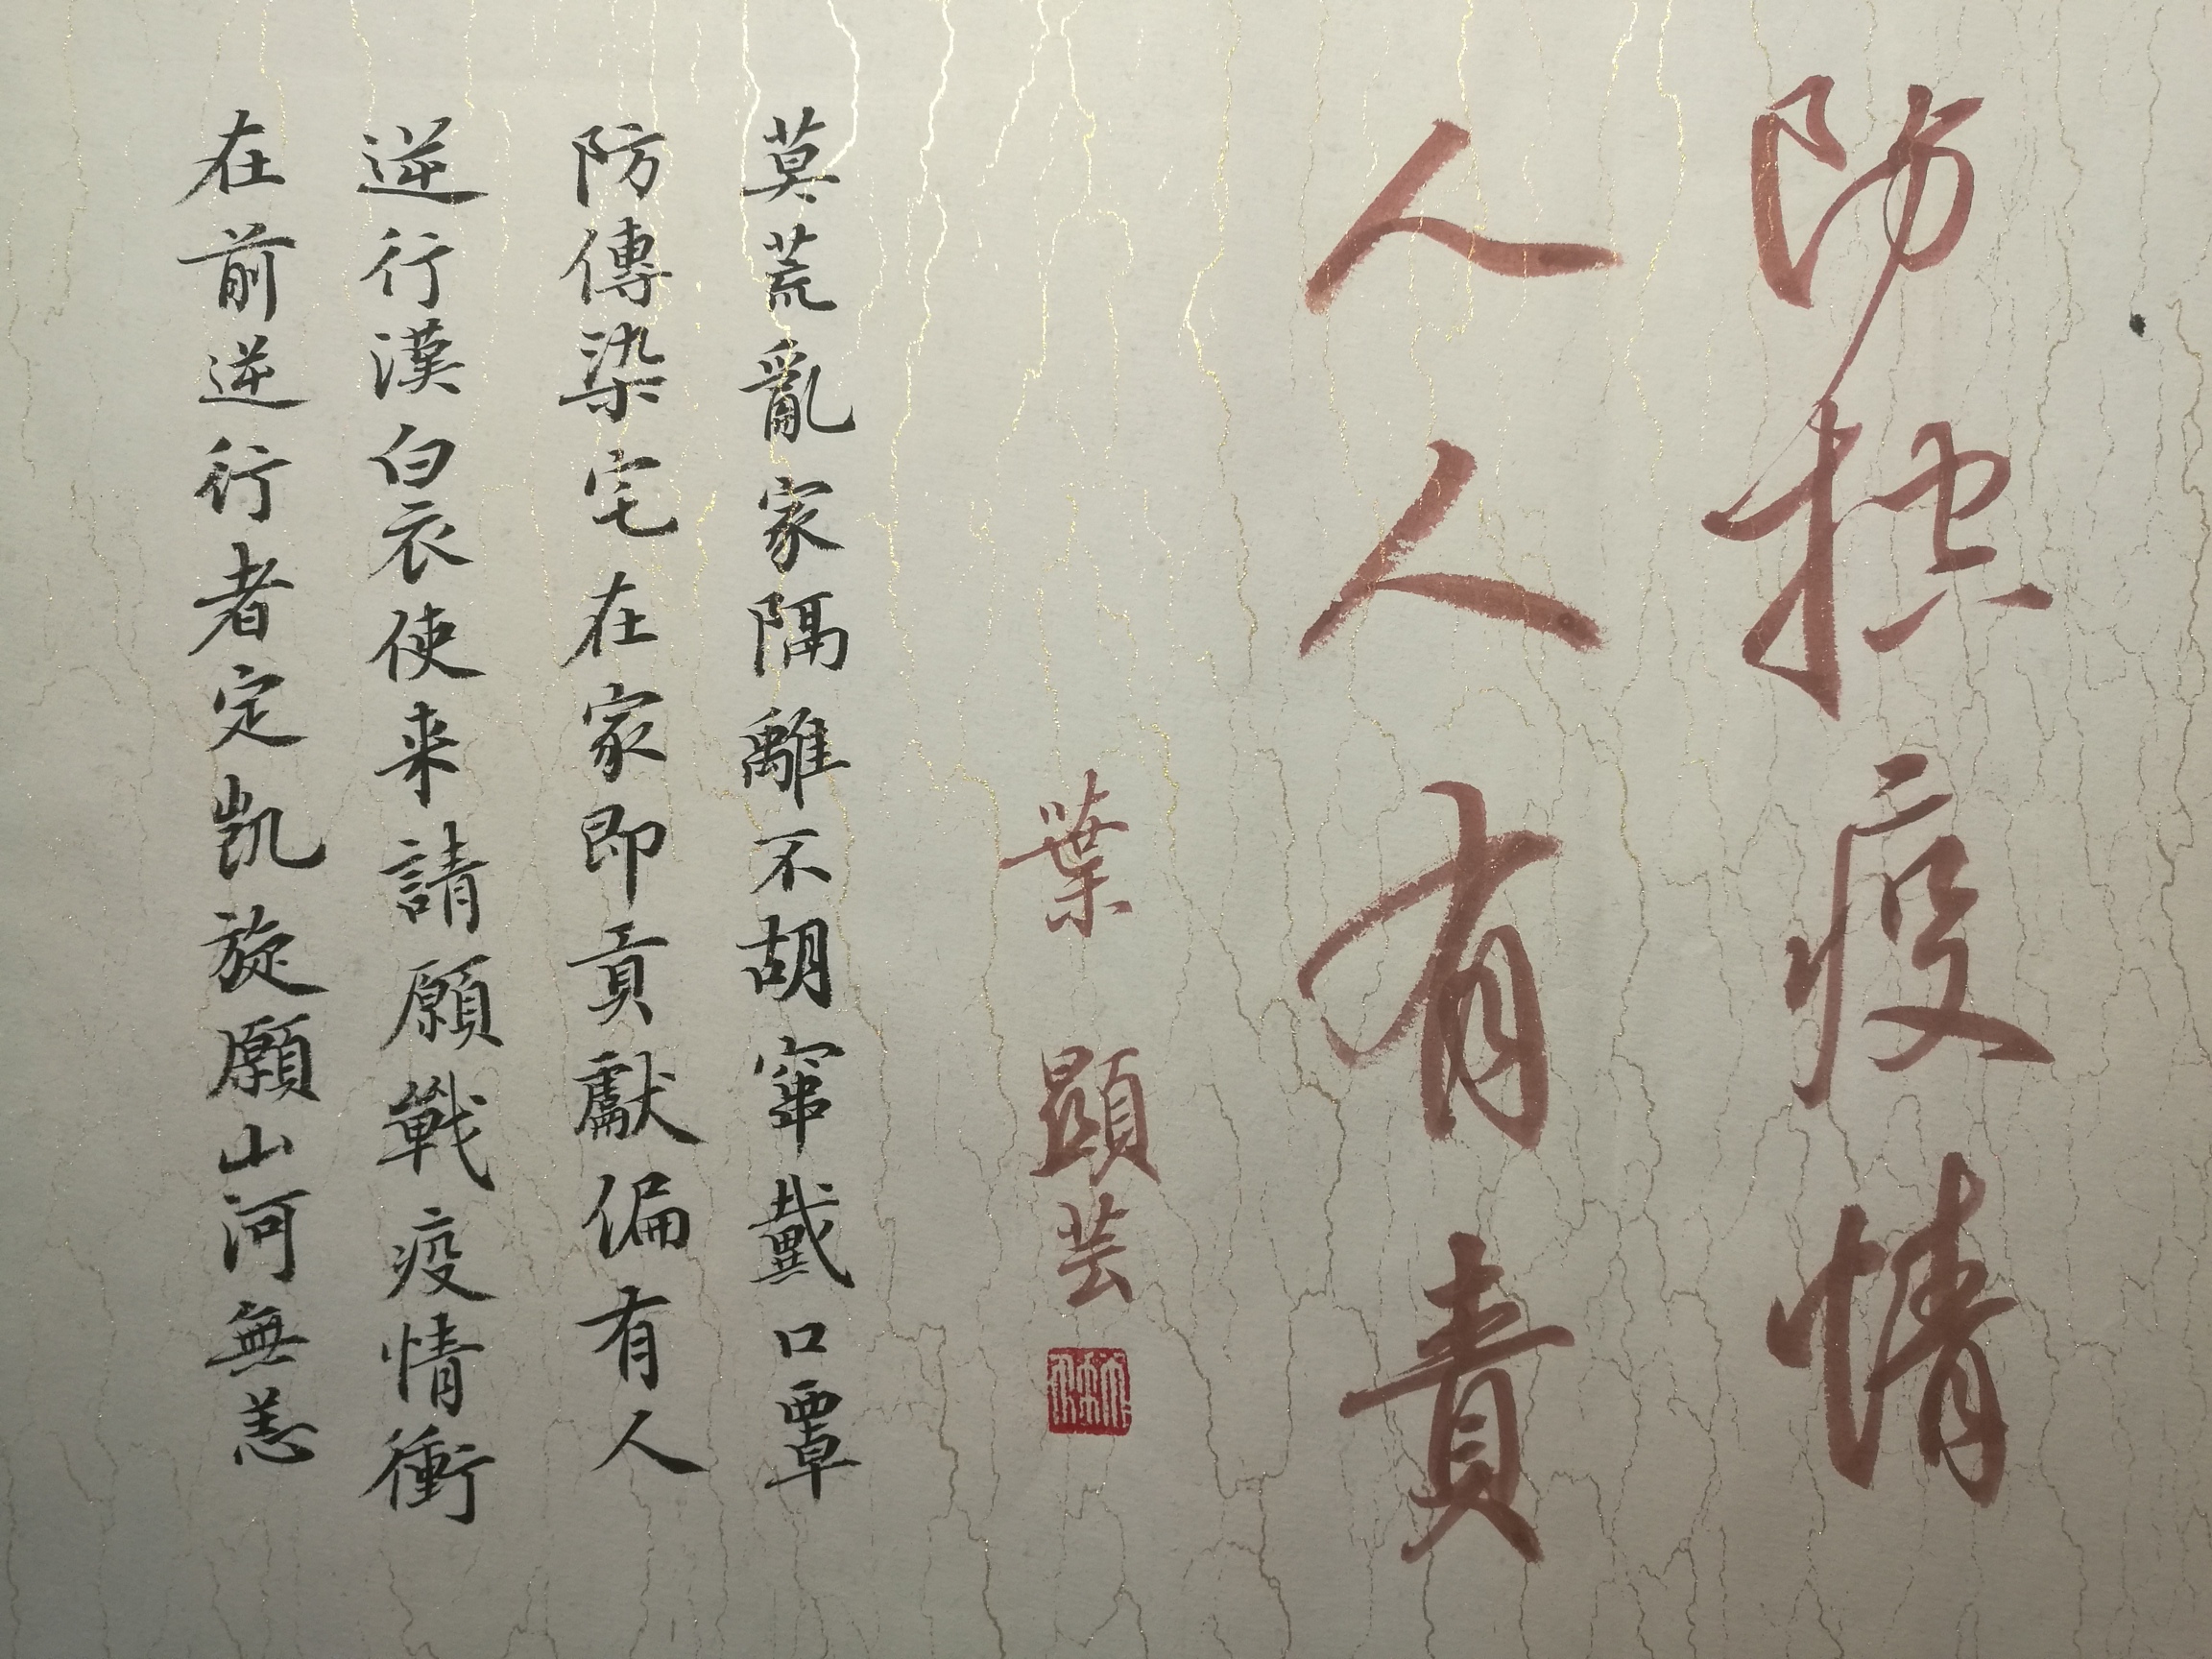 防控疫情
人人有責
葉顕芸
莫荒亂家隔離不胡窜戴口覃
防傳染宅在家即貢獻偏有人
逆行漢白衣使来請願戰疫情衝
在前逆行者定凱旋願山河無恙